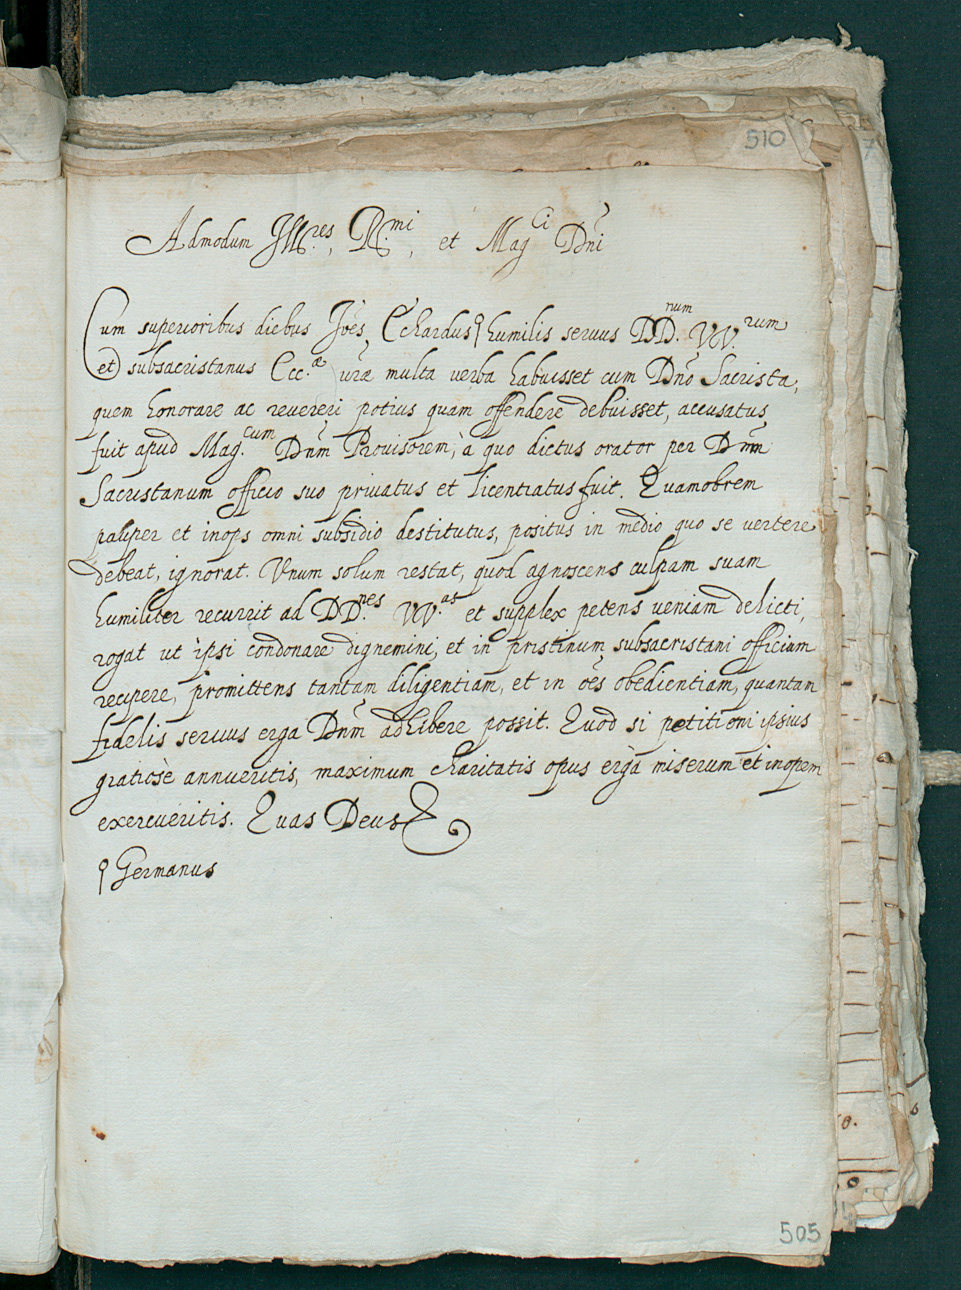 510
Admodum Ill.res, R.mi, et Mag.ci Dn̄i
Cum superioribus diebus Joēs, Echardus ϙ humilis seruus DD.num VV.rum
et subsacristanus Ecc.æ ūræ multa verba habuisset cum Dn̄o Sacrista,
quem honorare ac reuereri potius quam offendere debuisset, accusatus
fuit apud Mag.cum Dn̄m Prouisorem, à quo dictus orator per Dn̄m
Sacristanum officio suo priuatus et licentiatus fuit. Quamobrem
pauper et inops omni subsidio destitutus, positus in medio quo se vertere
debeat, ignorat. Vnum solum restat, quod agnoscens culpam suam
humiliter recurrit ad DD.nes VV.as et supplex petens ueniam delicti,
rogat ut ipsi condonare dignemini, et in pristinum subsacristani officium
recipere, promittens tantam diligentiam, et in oēs obedientiam, quantam
fidelis seruus erga Dn̄m adhibere possit. Quod si petitioni ipsius
gratiosè annueritis, maximum charitatis opus ergà miserum et inopem
exercueritis. Quas Deus &
ϙ Germanus
505